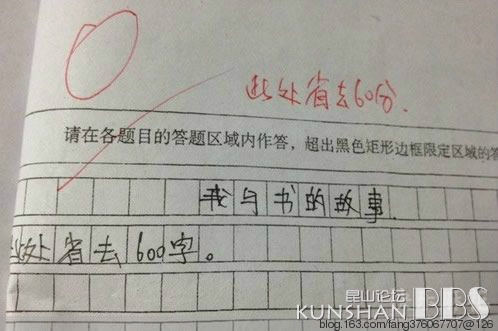 此处省去60分.
请在各题目的答题区域内作答，超出黑色矩形边框限定区域的答
我与书的故事
此处省去600字。
昆山论坛
KUNSHAN BBS
blog.163.com/fang376067707@126